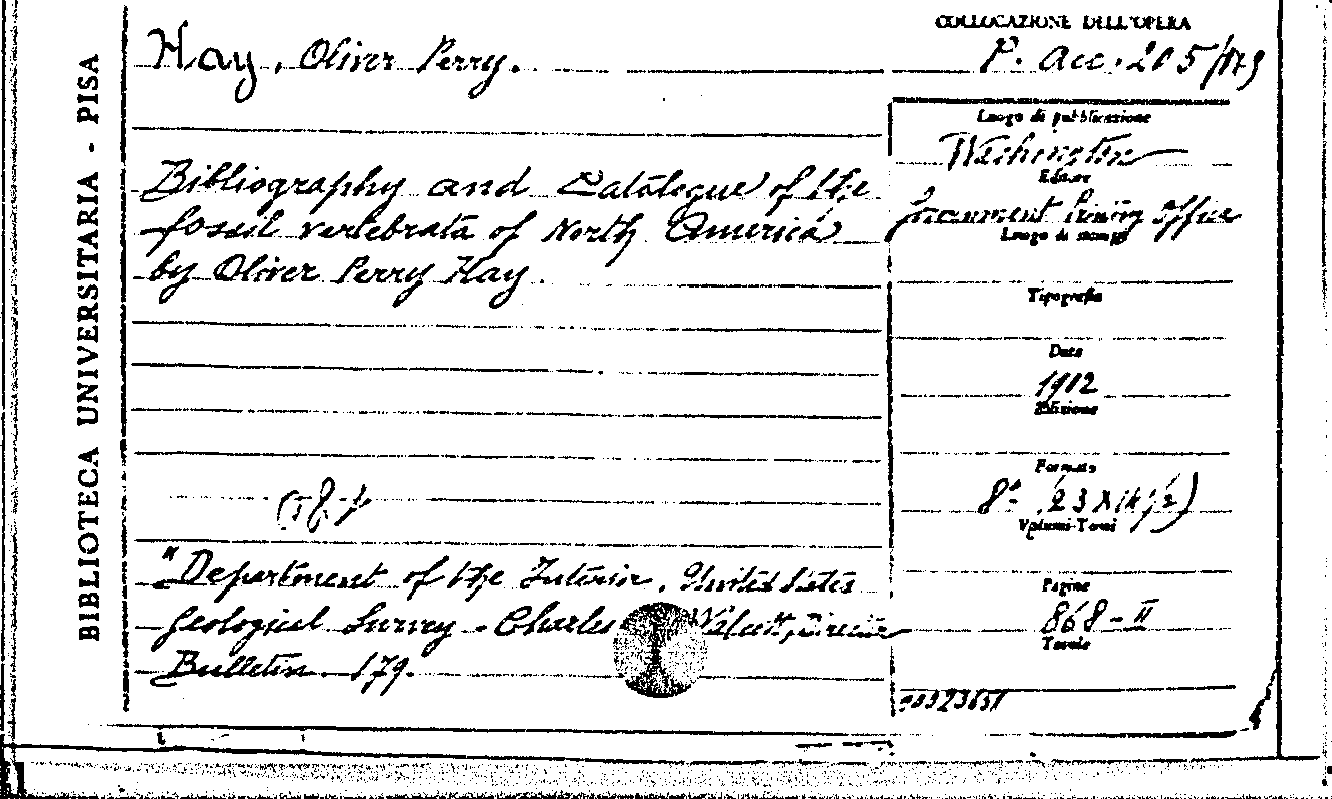 BIBLIOTECA UNIVERSITARIA - PISA
COLLOCAZIONE DELL'OPERA
Hay, Oliver Perry.
P. acc. 205/179
Luogo di pubblicazione
Washington
Editore
Bibliography and Catalogue of the
fossil vertebrata of North America
by Oliver Perry Hay.
Government Printing Office
Luogo di stampa
Tipografia
Data
1902
Edizione
Formato
8°
Volumi-Tomi
"Department of the Interior, United States
Geological Survey - Charles Walcott, Director
Bulletin. 179.
Pagine
868-II
Tavole